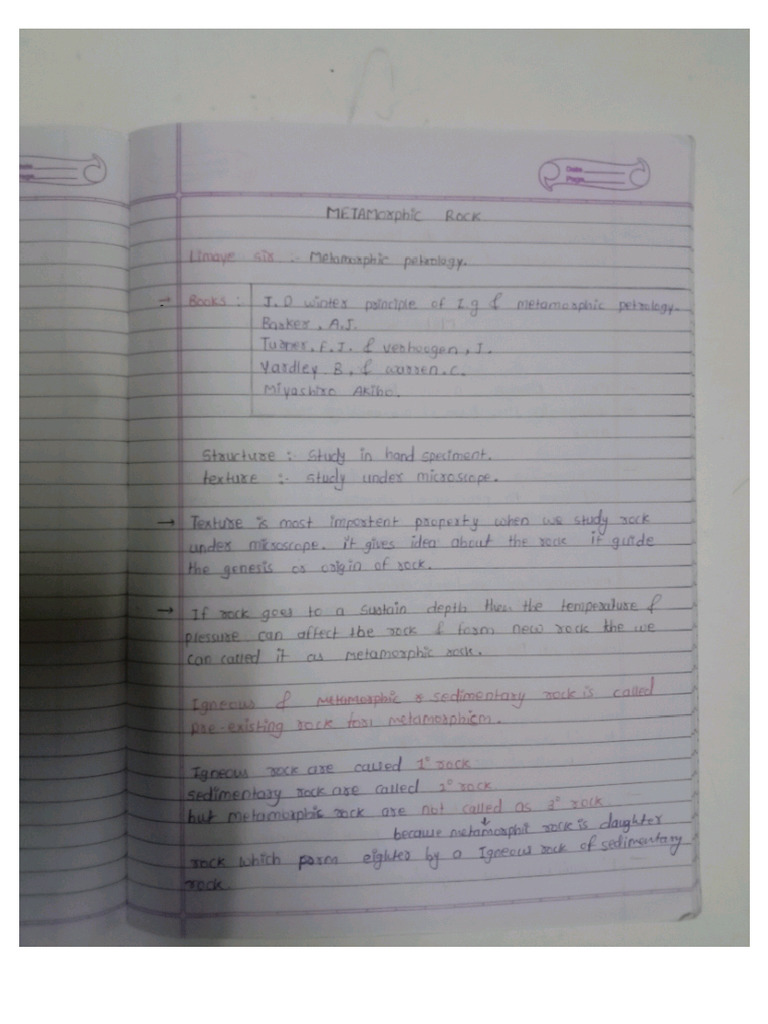 Date
Page
METAMorphic Rock
Limaye sir :- Metamorphic petrology.
→ Books : J. D winter principle of I.g & metamorphic petrology.
Barker, A.J.
Turner, F. J. & verhoogen, J.
Yardley B. & warren. C.
Miyashiro Akiho.
Structure : Study in hand speciment.
texture :- study under microscope.
→ Texture is most importent property when we study rock
under microscope. it gives idea about the rock it guide
the genesis or origin of rock.
→ If rock goes to a sustain depth then the temperature &
pressure can affect the rock & form new rock the we
can called it as metamorphic rock.
Igneous & metamorphic & sedimentary rock is called
pre-existing rock for metamorphism.
Igneous rock are called 1° rock
sedimentary rock are called 2° rock
but metamorphic rock are not called as 3° rock
because metamorphi rock is daughter
rock which form eighter by a Igneous rock of sedimentary
rock